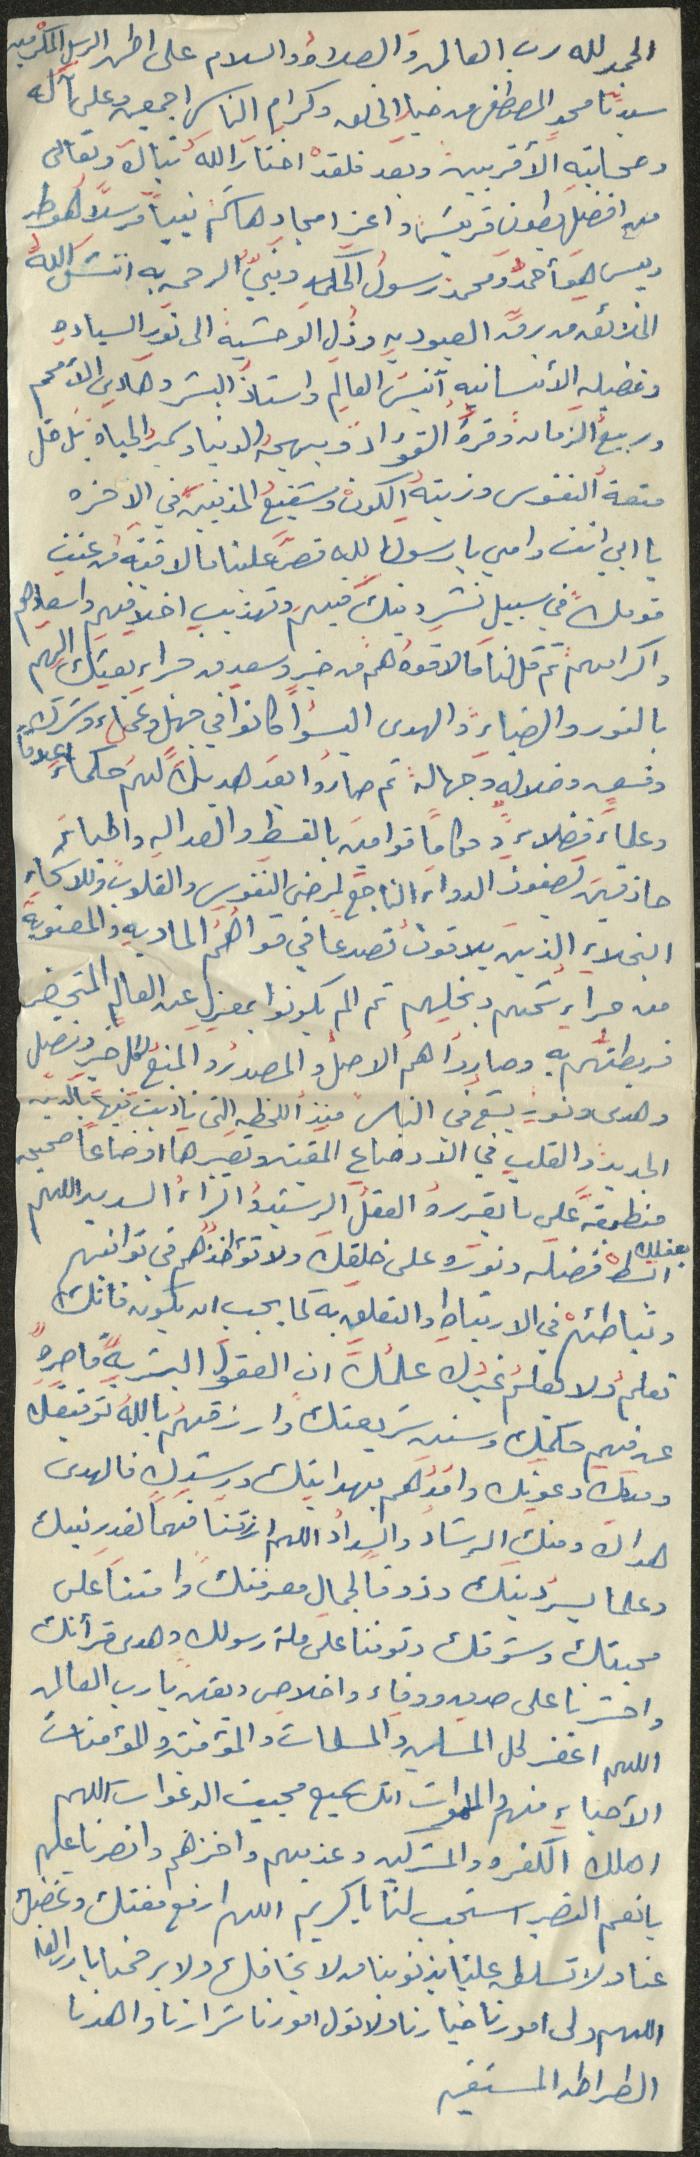 الحمد لله رب العالمين والصلاة والسلام على اطهر الرسل المكرمين
سيدنا محمد المصطفى من خيار الخلق وكرام الناس اجمعين وعلى آله
وصحابته الأقربين وبعد فلقد اختار الله تبارك وتعالى
من افضل بطون قريش واعز امجاد هاشم نبياً مرسلاً هو طه
ويس هو أحمد ومحمد رسول الحكمه ونبي الرحمه به انتشل الله
الخلائق من رق العبوديه وذل الوحشية الى نور السياده
وفضيله الأنسانيه أنيس العالم واستاذ البشر وهادي الأمم
وربيع الزمان وقرة الفؤاد وبهجة الدنيا وسمير الحياة بل قل
متعة النفوس وزينة الكون وشفيع المذنبين في الاخره
يا ابي انت وامي يا رسول الله قص علينا ما لاقيته من عنت
قومك في سبيل نشر دينك فيهم وتهذيب اخلاقهم واسعادهم
واكرامهم ثم قل لنا ما لاقوه هم من خير وسعد من جراء بعثك اليهم
بالنور والضياء والهدى اليسوا كانوا في جهل وعماء وشرك
وفسق وضلاله وجهالة ثم صاروا بعد هديك لهم حكماء اعلاماً
وعلماء فضلاء وحكاماً قوامين بالقسط والعداله واطباء
حاذقين يصفون الدواء الناجع لمرضى النفوس والقلوب وللاشحاء
البخلاء الذين يلاقون تصدعاً في قواهم الماديه والمعنوية
من جراء شحهم وبخلهم ثم الم يكونوا بمعزل عن العالم المتحضر
فربطتهم به وصاروا هم الاصل والمصدر والمنبع لكل خير وفضل
وهدى ونور يشع في الناس منذ اللحظه التي ناديت فيها بالدين
الجديد والقلب في الأوضاع المقيته وتصيرها اوضاعاً صحيحه
منطبقة على ما يقرره العقل الرشيد والرأي السديد اللهم
ابسط بفضلك فضله ونوره على خلقك ولا تؤاخذهم في توانيهم
وتباطئهم في الارتباط والتعلق به كما يجب ان يكون فانك
تعلم ولا يعلم غيرك علمك ان العقول البشرية قاصرة
عن فهم حكمك وسنن شريعتك وارزقهم يا الله توفيقك
ومنك وعونك وامدهم بهدايتك ورشدك فالهدى
هداك ومنك الرشاد والسداد اللهم ارزقنا فهماً لقدر نبيك
وعلما بسر دينك وذوقا لجمال معرفتك وامتنا على
محبتك وشوقك وتوفنا على ملة رسولك وهدى قرأنك
واحشرنا على صدق ووفاء واخلاص ويقين يا رب العالمين
اللهم اغفر لكل المسلمين والمسلمات والمؤمنين والمؤمنات
الأحياء منهم والاموات انك سميع مجيب الدعوات اللهم
اهلك الكفره والمشركين وعذبهم واخزهم وانصرنا عليهم
يا نعم النصير استجب لنا يا كريم اللهم ارفع مقتك وغضبك
عنا ولا تسلط علينا بذنوبنا من لا يخافك ولا يرحمنا يا رب
اللهم ولي امورنا خيارنا ولا تول امورنا شرارنا واهدنا
الصراط المستقيم